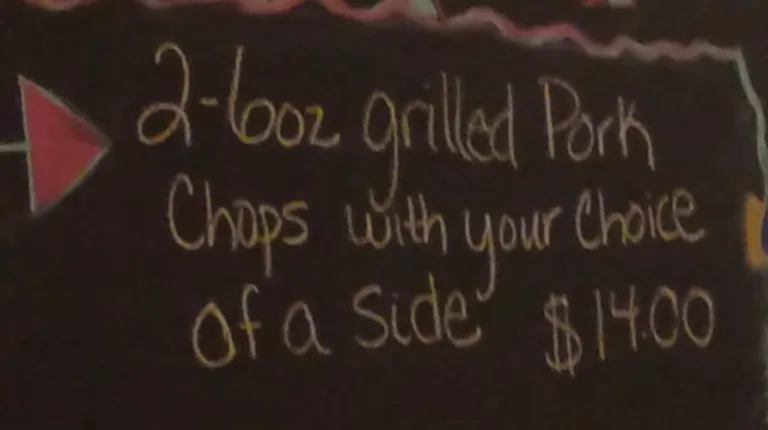 2-6oz grilled Pork
Chops with your Choice
of a Side $14.00